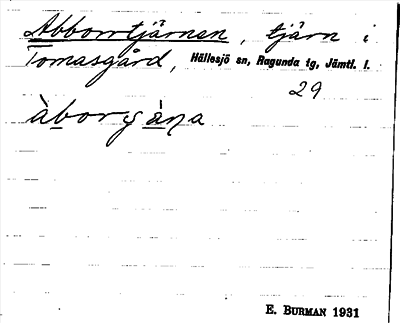 Abborrtjärnen, tjärn i
Tomasgård, Hällesjö sn, Ragunda tg, Jämtl. l.
29
E. BURMAN 1931